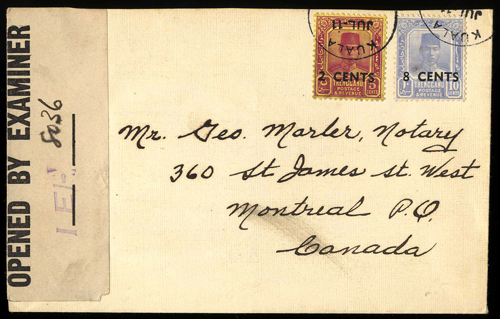 OPENED BY EXAMINER
8036
KUALA
JUL-11
2 CENTS
TRENGGANU
POSTAGE
& REVENUE
5
CENTS
KUALA
JUL-11
8 CENTS
TRENGGANU
POSTAGE
& REVENUE
10
CENTS
Mr. Geo. Marler, Notary
360 St James St. West
Montreal P.Q.
Canada